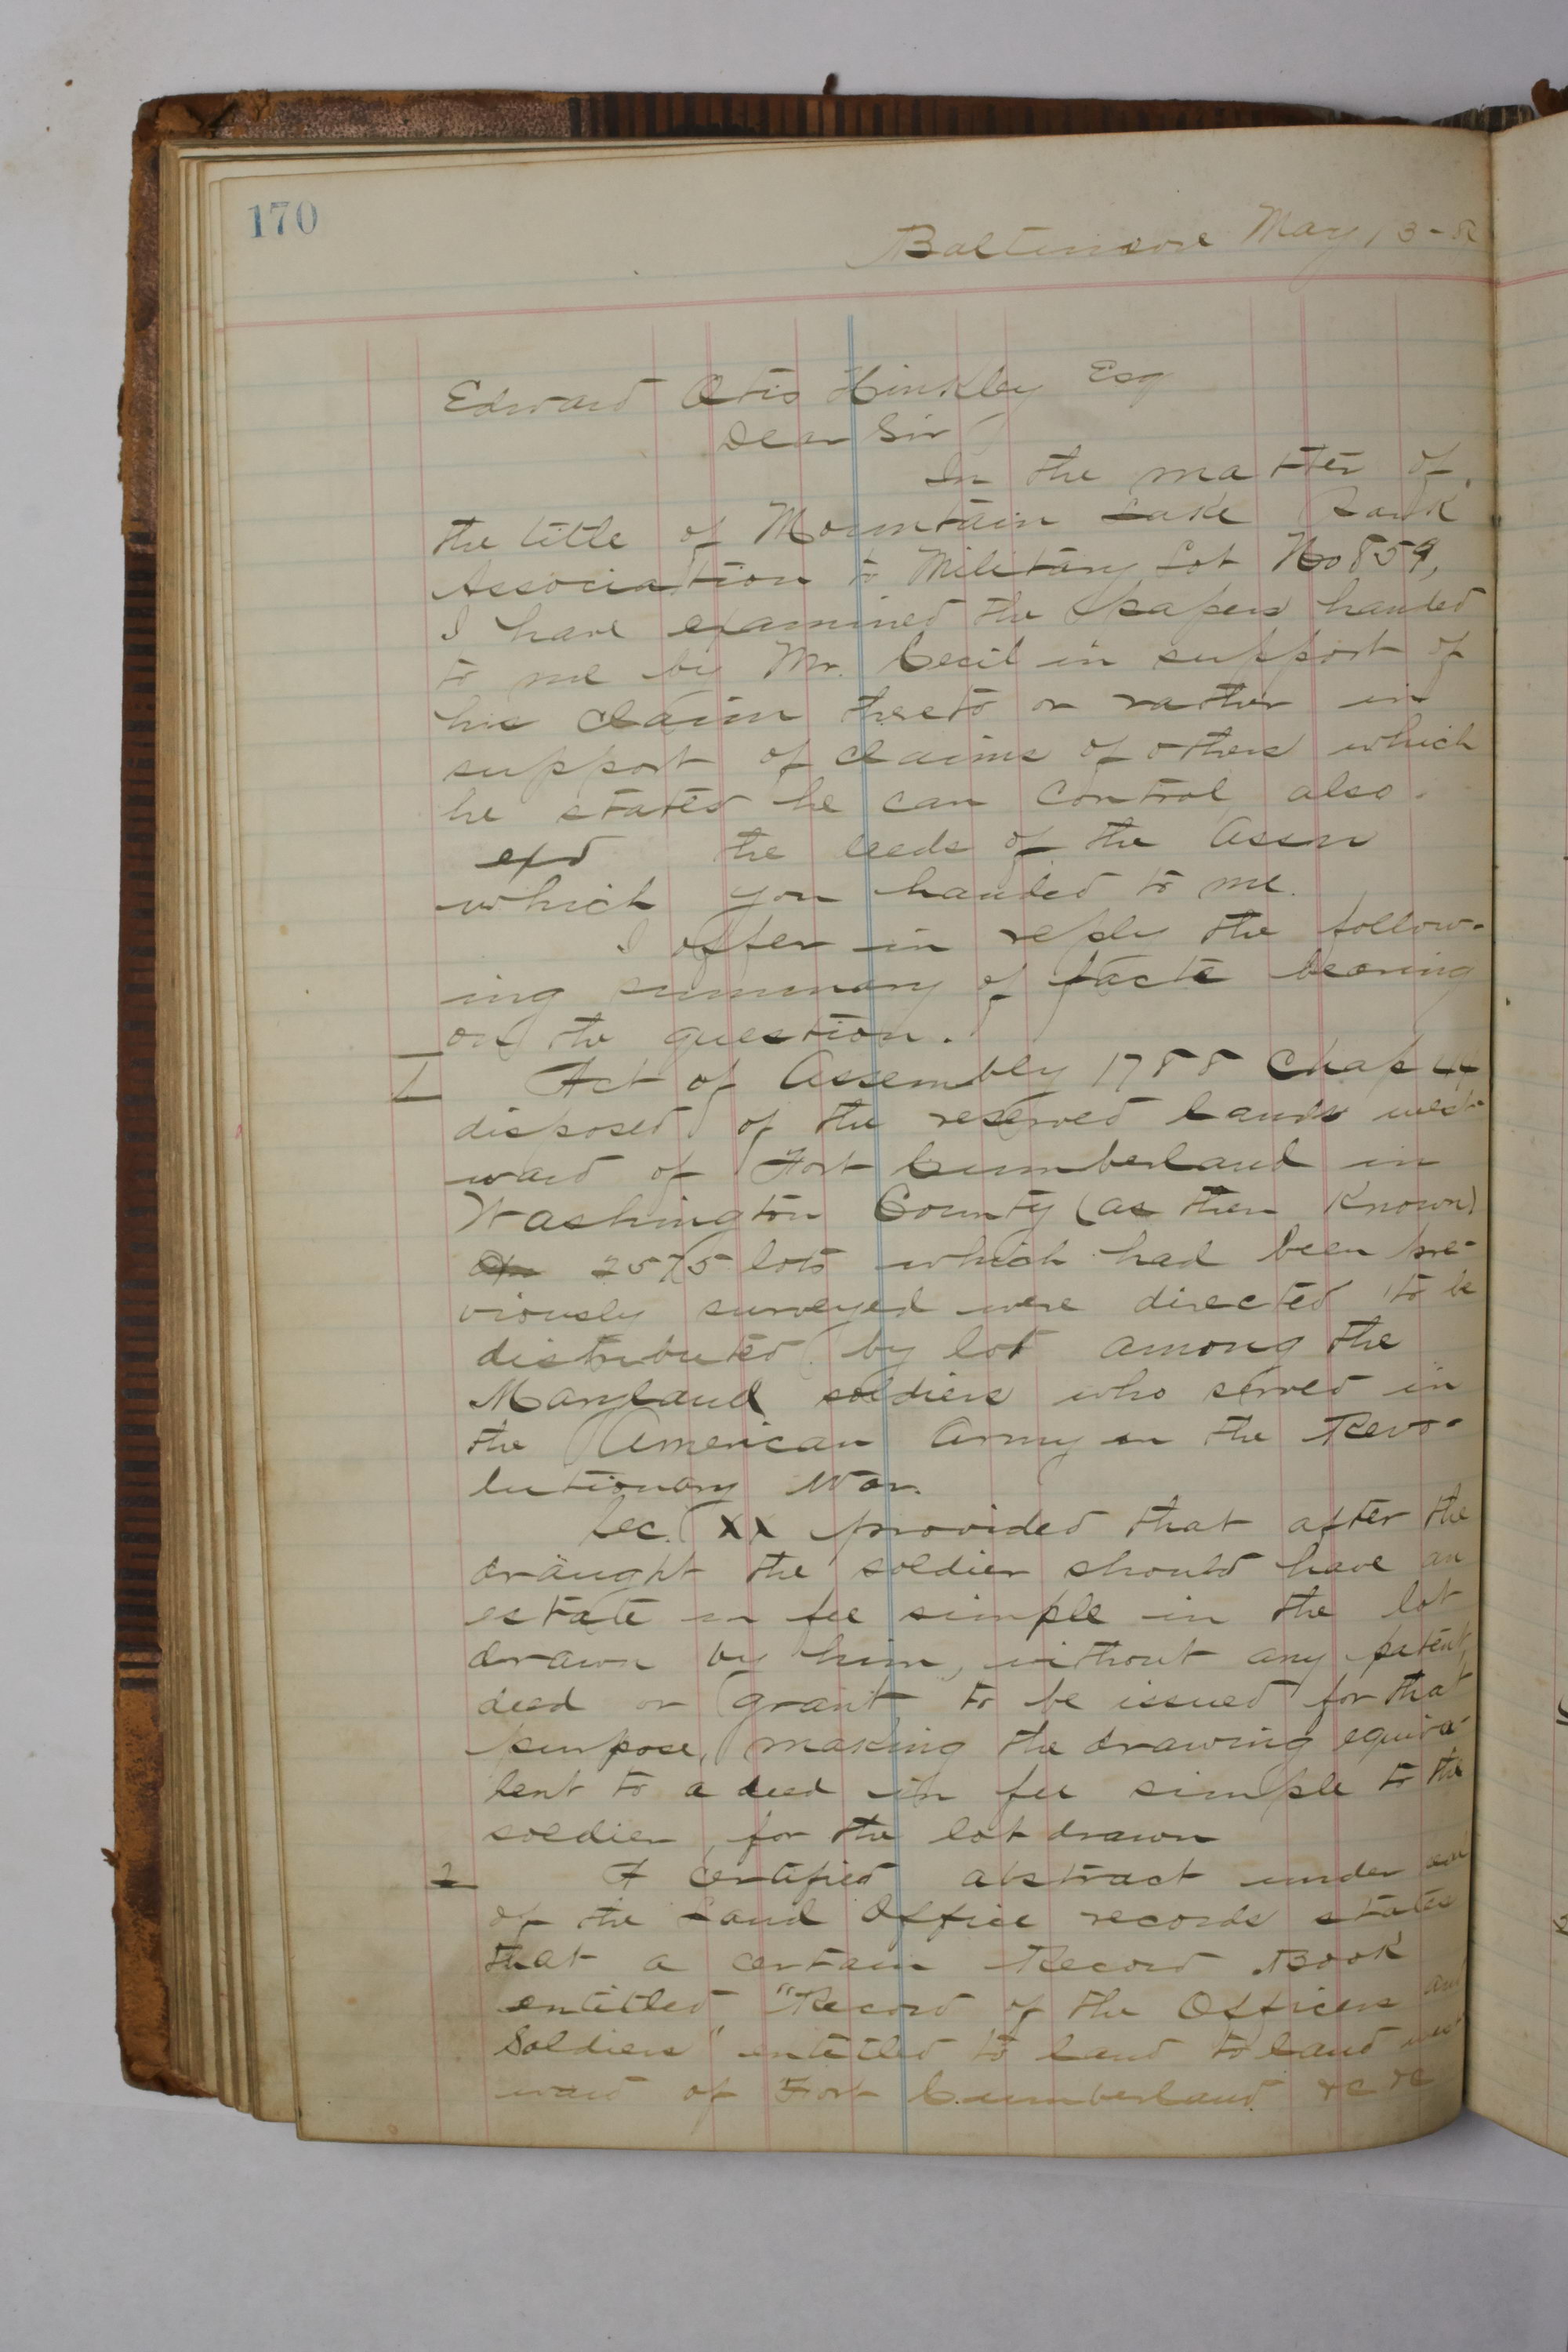 170
Baltimore May 13-8
Edward Otis Hinkley Esq
Dear Sir
In the matter of
the title of Mountain Lake Park
Association to Military Lot No 859,
I have examined the papers handed
to me by Mr. Cecil in support of
his claim thereto or rather in
support of claims of others which
he stated he can control also.
exd the deeds of the Assn
which you handed to me.
I offer in reply the follow-
ing summary of facts bearing
on the question.
1 Act of Assembly 1788 Chap 44
disposed of the reserved lands west-
ward of Fort Cumberland in
Washington County (as then known)
2575 lots which had been pre-
viously surveyed were directed to be
distributed by lot among the
Maryland soldiers who served in
the American Army in the Revo-
lutionary War.
Sec. XX provided that after the
draught the soldier should have an
estate in fee simple in the lot
drawn by him, without any patent,
deed or grant to be issued for that
purpose, making the drawing equiva-
lent to a deed in fee simple to the
soldier, for the lot drawn
2 A certified abstract under seal
of the Land Office records states
that a certain Record Book
entitled "Record of the Officers and
Soldiers" entitled to land to land west
ward of Fort Cumberland &c &c